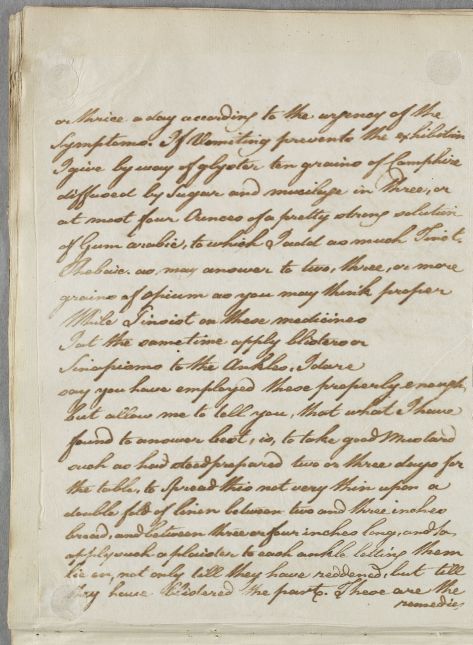 or thrice a day according to the urgency of the
Symptoms. If Vomiting prevents the exhibition
I give by way of glyster ten grains of Camphire
diffused by Sugar and mucilage in Three, or
at most four Ounces of a pretty strong solution
of Gum arabic, to which I add as much Tinct.
Thebaic. as, may answer to two, three, or more
grains of opium as you may think proper
While I insist on these medicines
I at the same time apply blisters or
Sinapisms to the Ankles. I dare
say you have employed these properly enough,
but allow me to tell you, that what I have
found to answer best, is, to take good Mustard
such as had stood prepared two or three days for
the table, to Spread this not very thin upon a
double fold of linen between two and three inches
broad, and between three or four inches long, and to
apply such a plaister to each ankle letting them
lie on, not only till they have reddened, but till
they have blistered the parts. These are the
remedies